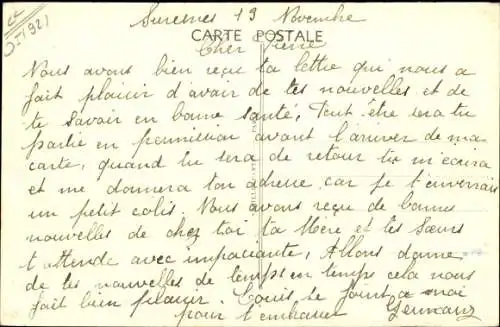 Suresnes 19 Novembre
CARTE POSTALE
Cher Pierre
Nous avons bien reçu ta lettre qui nous a
fait plaisir d'avair de tes nouvelles et de
te savoir en bonne santé, Peut être sera tu
partie en permission avant l'arriver de ma
carte, quand tu sera de retour tu m'écrira
et me donnera ton adresse car je t'enverrais
un petit colis. Nous avons reçu de bonnes
nouvelles de chez toi ta Mère et tes Sœurs
t'attende avec impatiante, Allons donne
de tes nouvelles de temps en temps cela nous
fait bien plaisir. Louis se joint a moi
pour t'embrasser Germaine